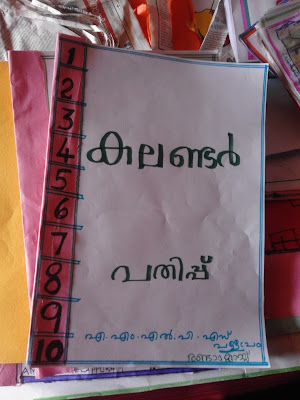 1
2
3
4
5
6
7
8
9
10
കലണ്ടർ
വതിപ്പ്
എ.എം.എൽ.പി.എസ്
രണ്ടാംക്ലാസ്സ്